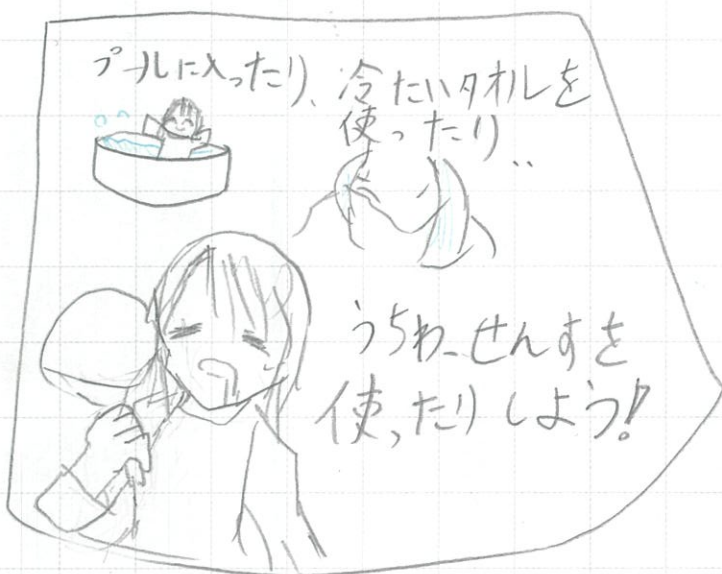 プールに入ったり、冷たいタオルを
使ったり‥
うちわ、せんすを
使ったりしよう!